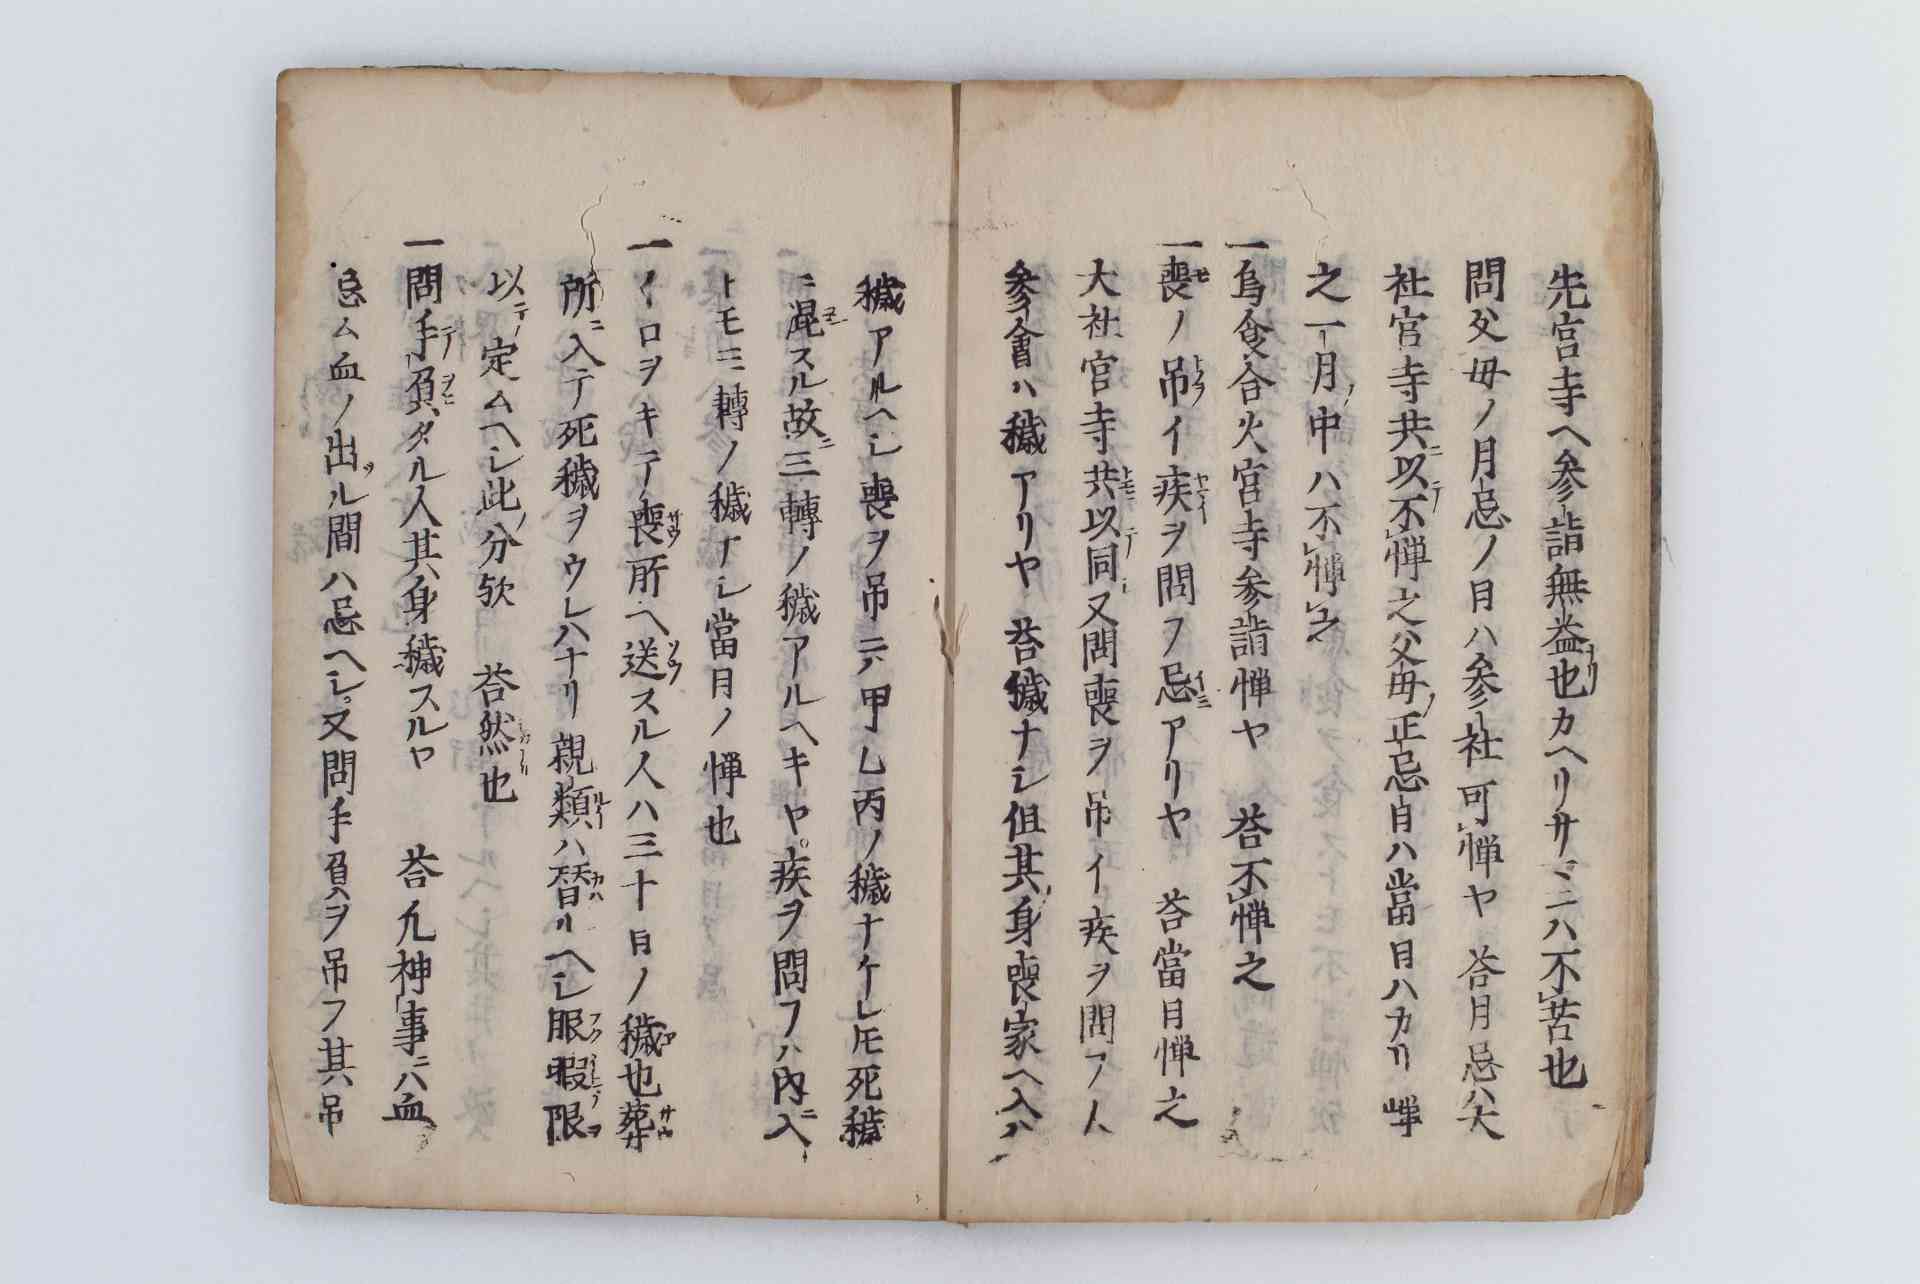 先宮寺ヘ参詣無益也カヘリサマニハ不苦也
問父毎ノ月忌ノ日ハ参社可憚ヤ 荅月忌ハ大
社官寺共以不憚之父毎正忌自ハ當日ハカリ憚
之一月中ハ不憚之
一烏食合火宮寺参詣憚ヤ 荅不憚之
一喪ノ吊イ疾ヲ問フ忌アリヤ 荅當日憚之
大社官寺共以同又問喪ヲ吊イ疾ヲ問フノ人
参會ハ穢アリヤ 荅穢ナシ但其身喪家ヘ入ハ
穢アルヘシ喪ヲ吊ニハ甲乙丙ノ穢ナケレ𪜈死穢
ニ混スル故ニ三轉ノ穢アルヘキヤ疾ヲ問フハ内ニ入
トモニ轉ノ穢ナシ當日ノ憚也
一イロヲキテ喪所ヘ送スル人ハ三十日ノ穢也葬
所ニ入テ死穢ヲウレハナリ親類ハ替ルヘシ服暇限
以テ定ムヘシ此分歟 荅然也
一問手負タル人其身穢スルヤ 荅凢神事ニハ血
忌ム血ノ出ル間ハ忌ヘシ又問手負ヘヲ吊フ其吊